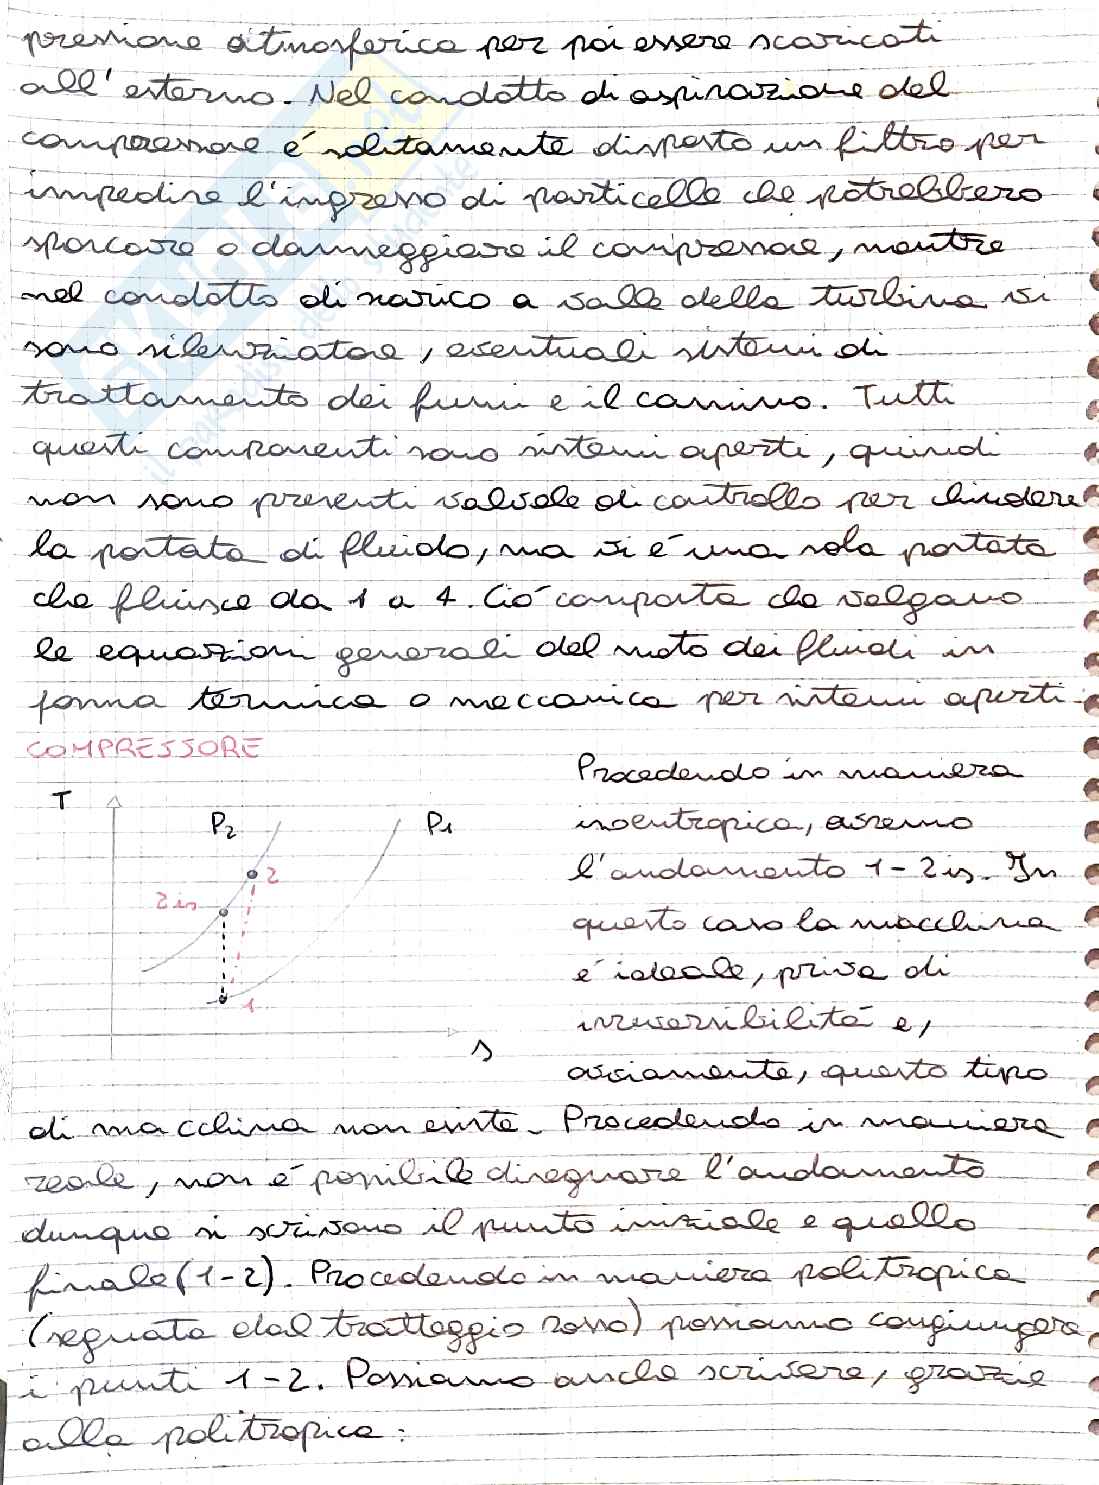 pressione atmosferica per poi essere scaricati
all'esterno. Nel condotto di aspirazione del
compressore é solitamente disposto un filtro per
impedire l'ingresso di particelle che potrebbero
sporcare o danneggiare il compressore, mentre
nel condotto di scarico a valle della turbina vi
sono silenziatore, eventuali sistemi di
trattamento dei fumi e il camino. Tutti
questi componenti sono sistemi aperti, quindi
non sono presenti valvole di controllo per chiudere
la portata di fluido, ma vi é una sola portata
che fluisce da 1 a 4. Ció comporta che valgano
le equazioni generali del moto dei fluidi in
forma termica o meccanica per sistemi aperti.
COMPRESSORE
T
P2
P1
2
2is
1
s
Procedendo in maniera
isoentropica, avremo
l'andamento 1-2is. In
questo caso la macchina
é ideale, priva di
irreversibilitá e,
ovviamente, questo tipo
di macchina non esiste. Procedendo in maniera
reale, non é possibile disegnare l'andamento
dunque si scrivono il punto iniziale e quello
finale (1-2). Procedendo in maniera politropica
(segnata dal tratteggio rosso) possiamo congiungere
i punti 1-2. Possiamo anche scrivere, grazie
alla politropica: